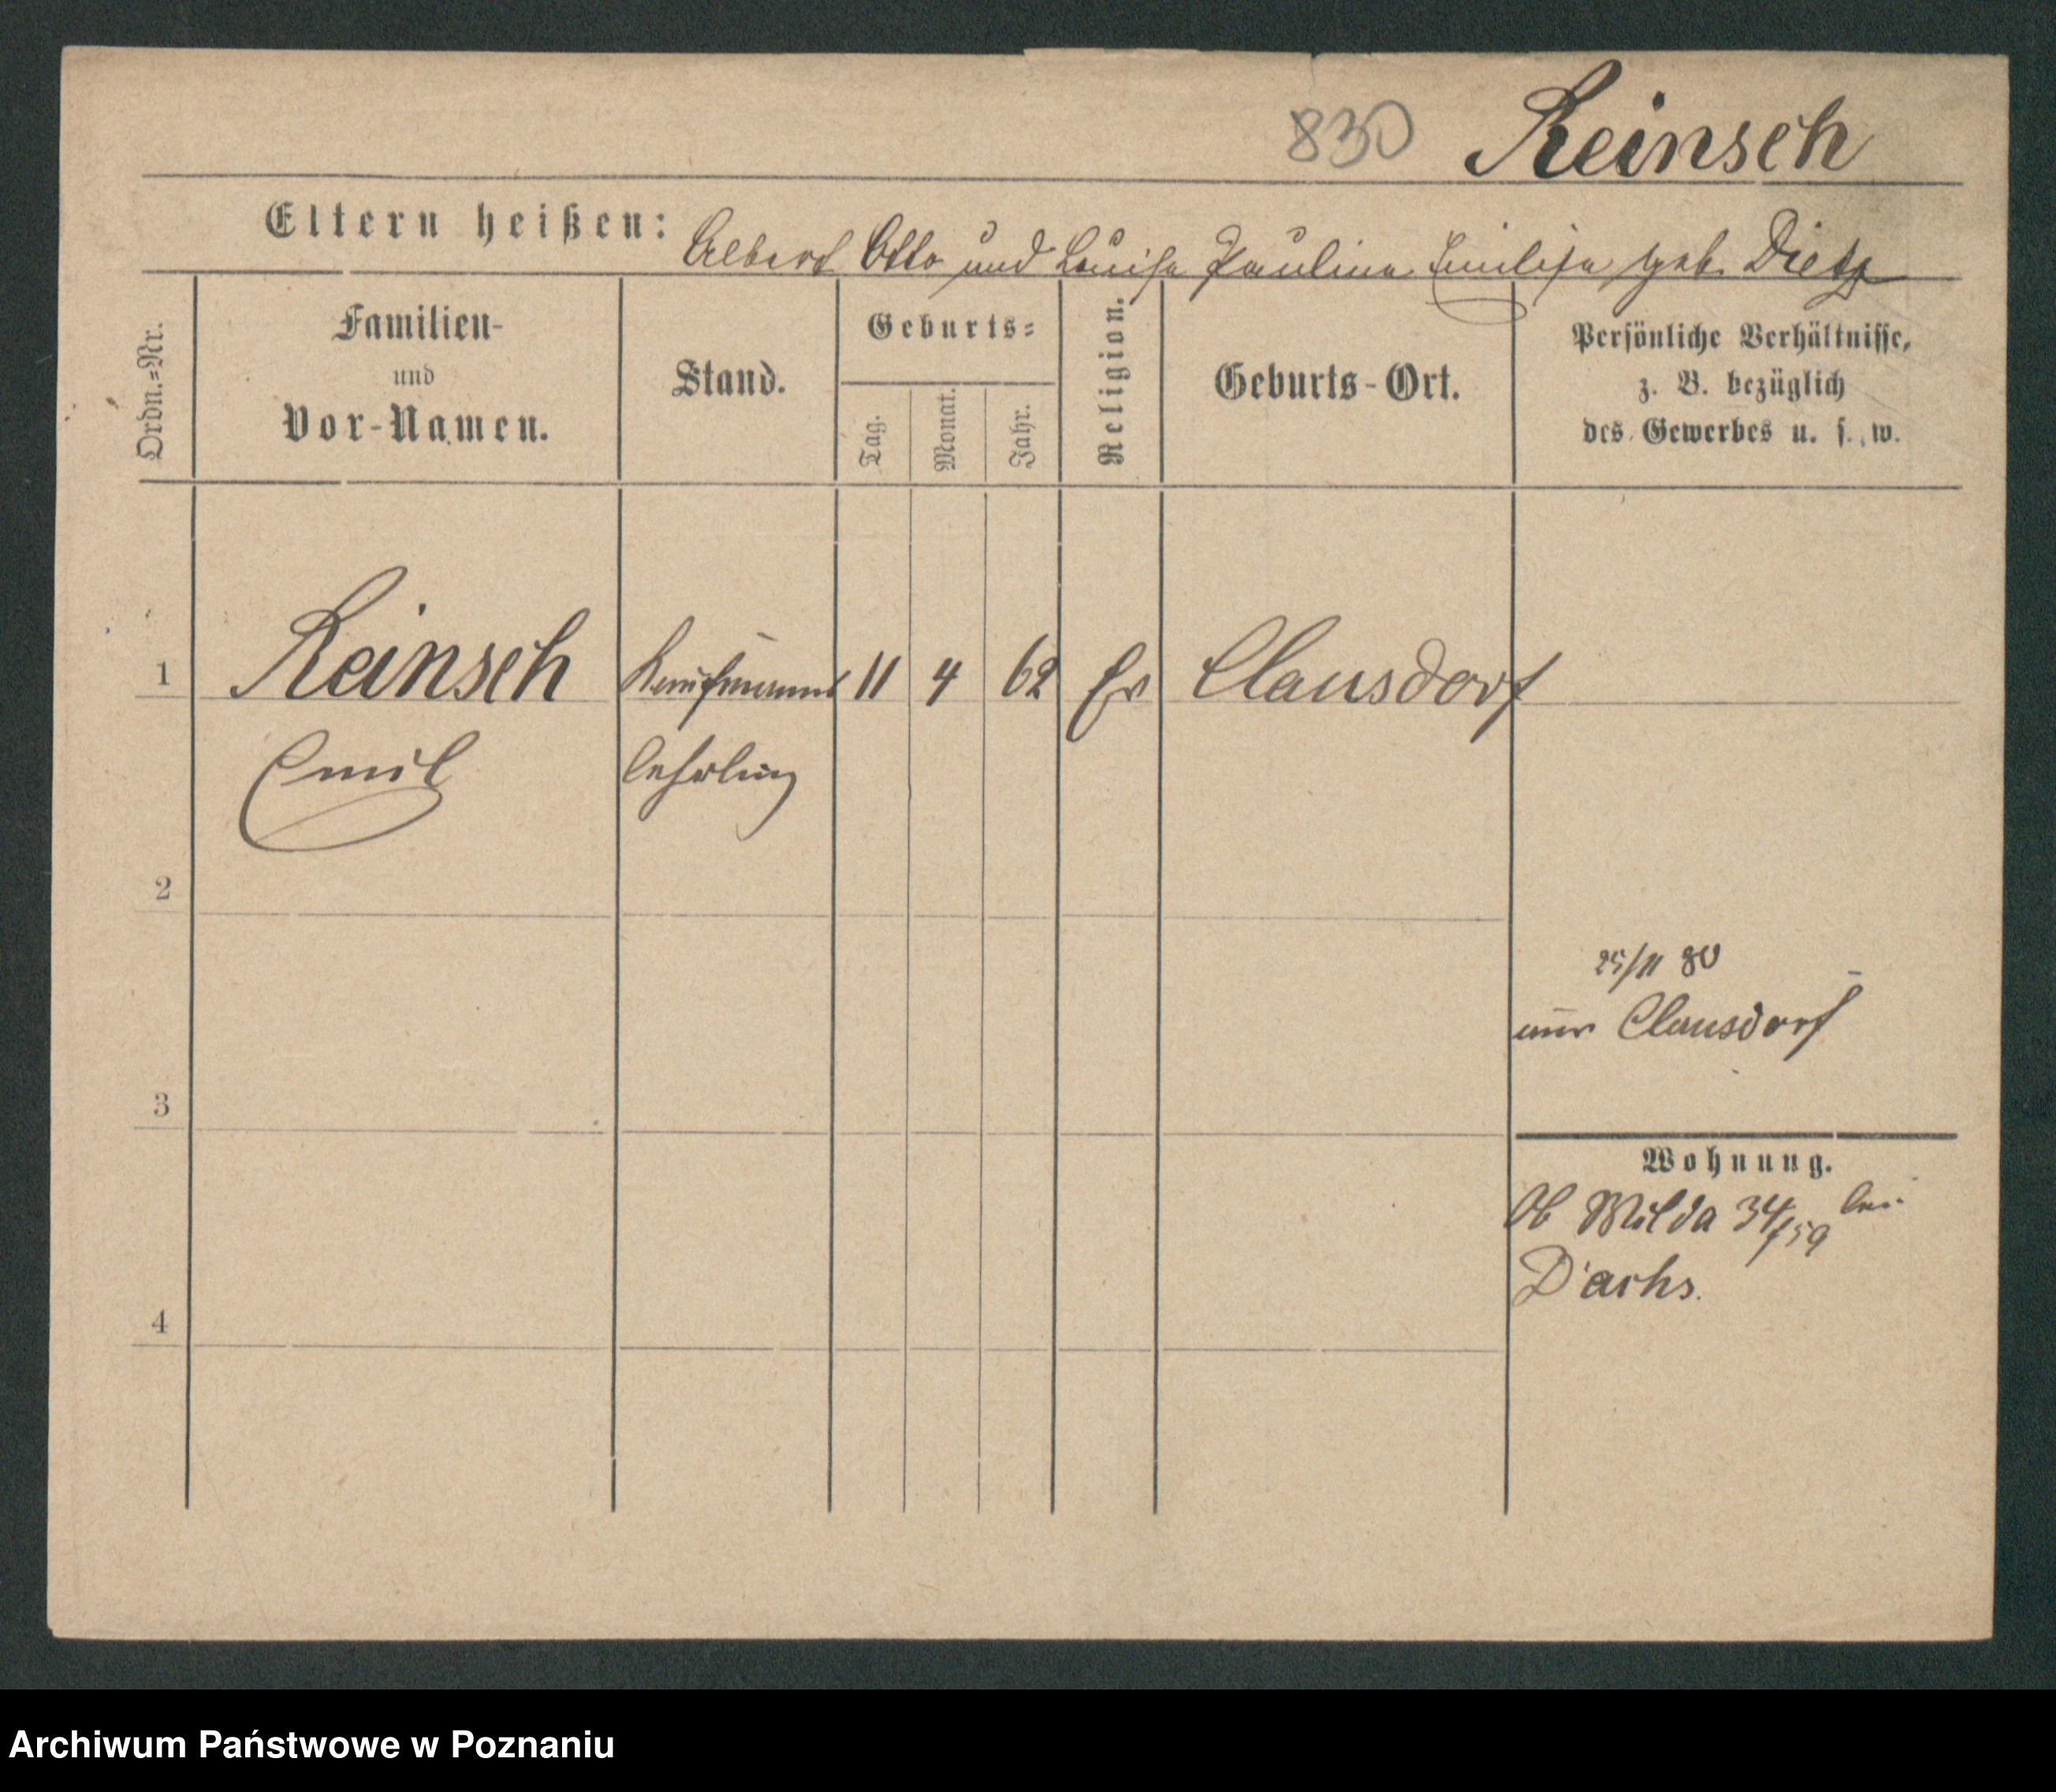 830 Reinsch
Eltern heißen: Albert Otto und Louise Pauline Emilie geb. Dietz
Ordn.=Nr.
Familien-
und
Vor-Namen.
Stand.
Geburts=
Tag.
Monat.
Jahr.
Religion.
Geburts-Ort.
Persönliche Verhältnisse,
z. B. bezüglich
des Gewerbes u. s. w.
1 Reinsch Kaufmanns 11 4 62 Ev Clausdorf
Emil lehrling
2
25/11 80
aus Clausdorf
3
Wohnung.
Ob Wilda 34/59 bei
Dachs.
4
Archiwum Państwowe w Poznaniu